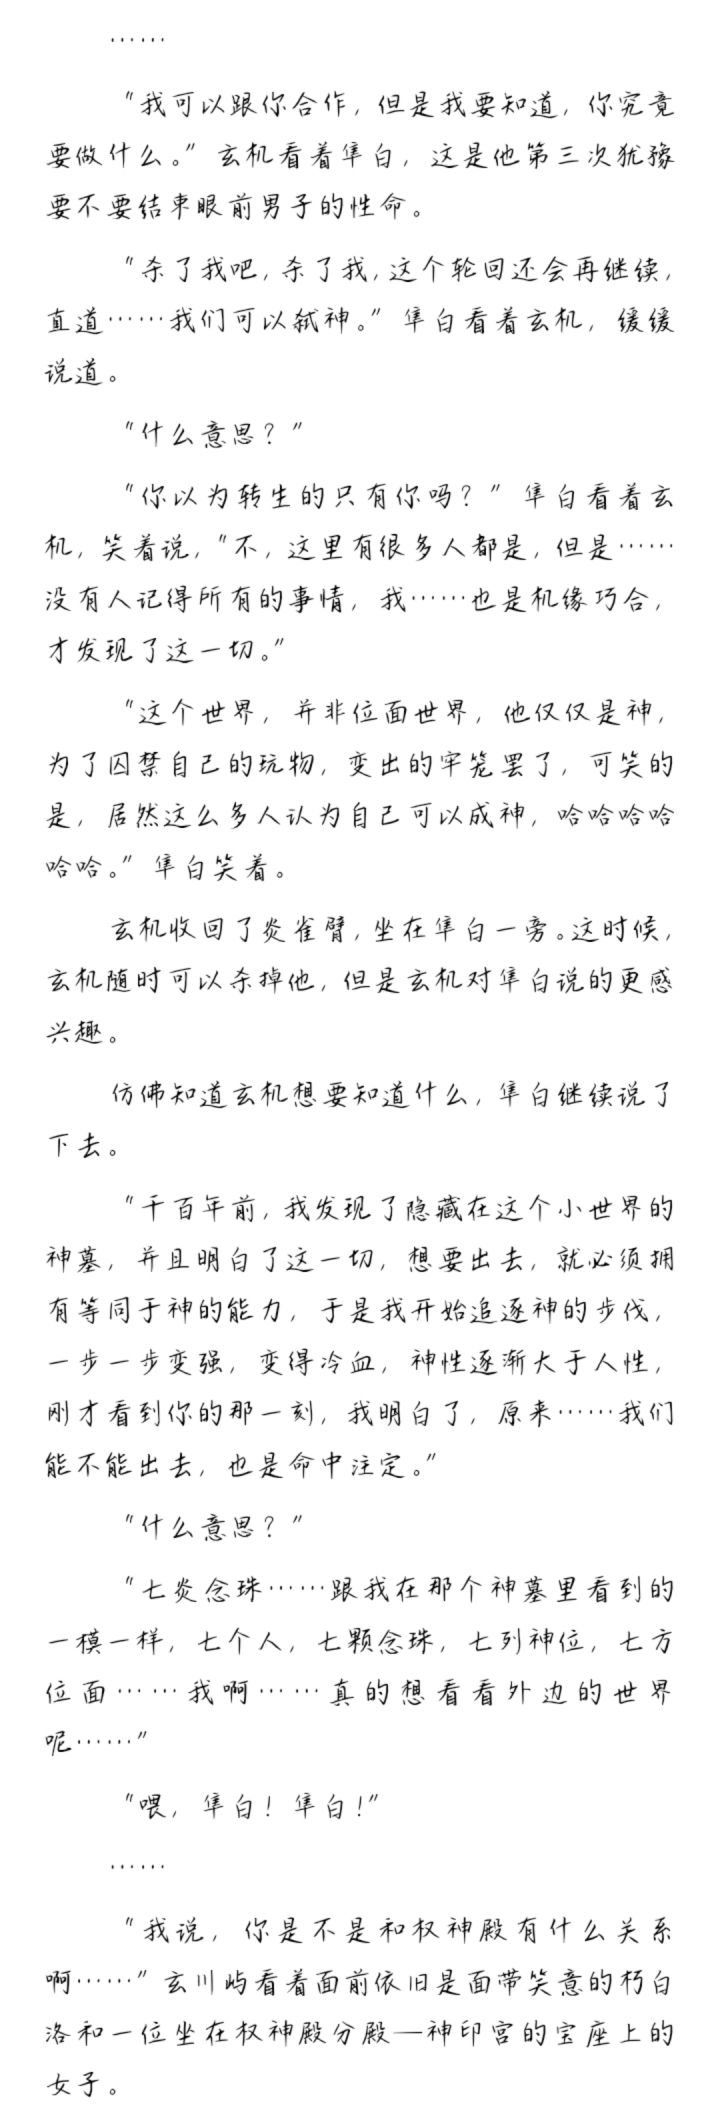 ……
“我可以跟你合作，但是我要知道，你究竟
要做什么。”玄机看着隼白，这是他第三次犹豫
要不要结束眼前男子的性命。
“杀了我吧，杀了我，这个轮回还会再继续，
直道……我们可以弑神。”隼白看着玄机，缓缓
说道。
“什么意思？”
“你以为转生的只有你吗？”隼白看着玄
机，笑着说，“不，这里有很多人都是，但是……
没有人记得所有的事情，我……也是机缘巧合，
才发现了这一切。”
“这个世界，并非位面世界，他仅仅是神，
为了囚禁自己的玩物，变出的牢笼罢了，可笑的
是，居然这么多人认为自己可以成神，哈哈哈哈
哈哈。”隼白笑着。
玄机收回了炎雀臂，坐在隼白一旁。这时候，
玄机随时可以杀掉他，但是玄机对隼白说的更感
兴趣。
仿佛知道玄机想要知道什么，隼白继续说了
下去。
“千百年前，我发现了隐藏在这个小世界的
神墓，并且明白了这一切，想要出去，就必须拥
有等同于神的能力，于是我开始追逐神的步伐，
一步一步变强，变得冷血，神性逐渐大于人性，
刚才看到你的那一刻，我明白了，原来……我们
能不能出去，也是命中注定。”
“什么意思？”
“七炎念珠……跟我在那个神墓里看到的
一模一样，七个人，七颗念珠，七列神位，七方
位面……我啊……真的想看看外边的世界
呢……”
“喂，隼白！隼白！”
……
“我说，你是不是和权神殿有什么关系
啊……”玄川屿看着面前依旧是面带笑意的朽白
洛和一位坐在权神殿分殿—神印宫的宝座上的
女子。